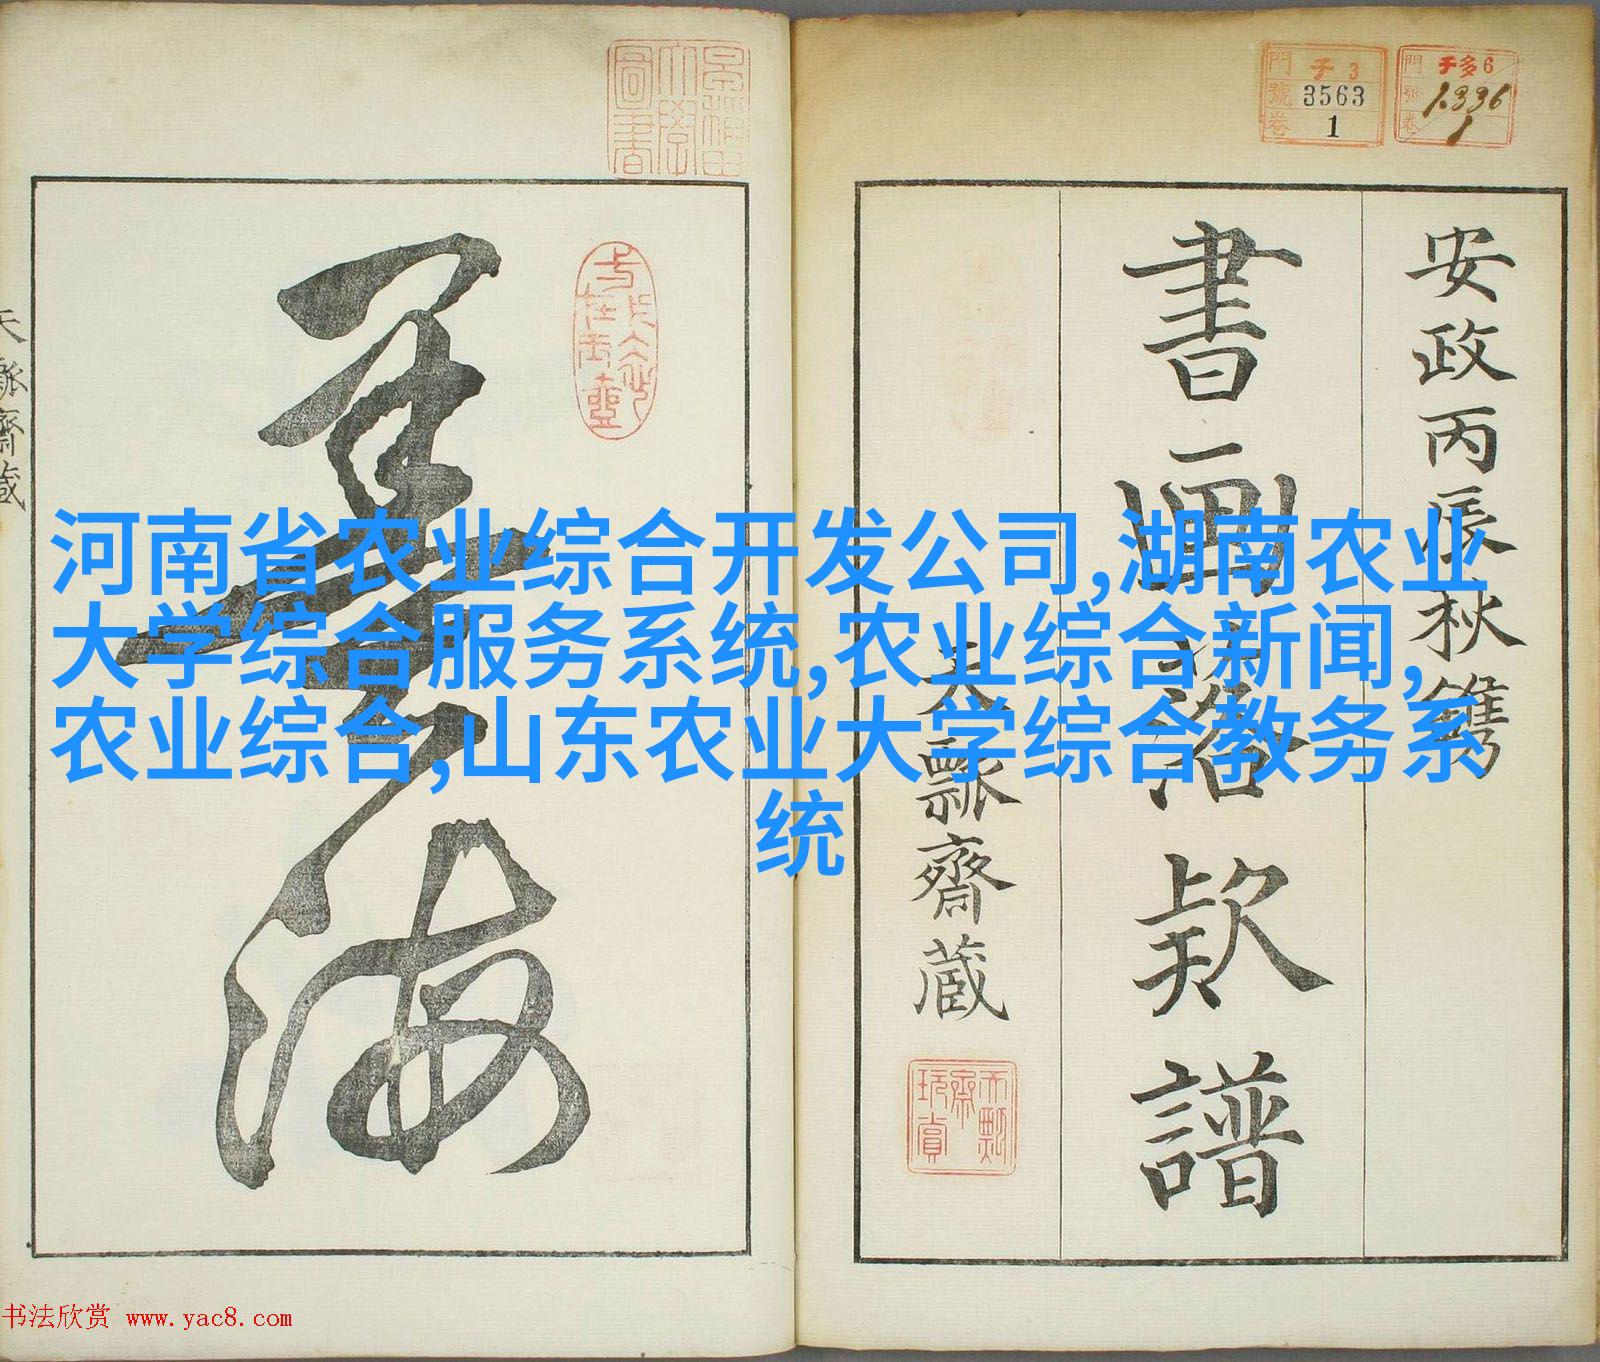 安政丙辰秋鐫
書畫落款譜
天瓢齋藏
墨海
天瓢齋藏
門 チ 3
號 3563
卷 1
門 チ多6
號 1336
卷 1
河南省农业综合开发公司,湖南农业
大学综合服务系统,农业综合新闻,
农业综合,山东农业大学综合教务系
统
书法欣赏 www.yac8.com